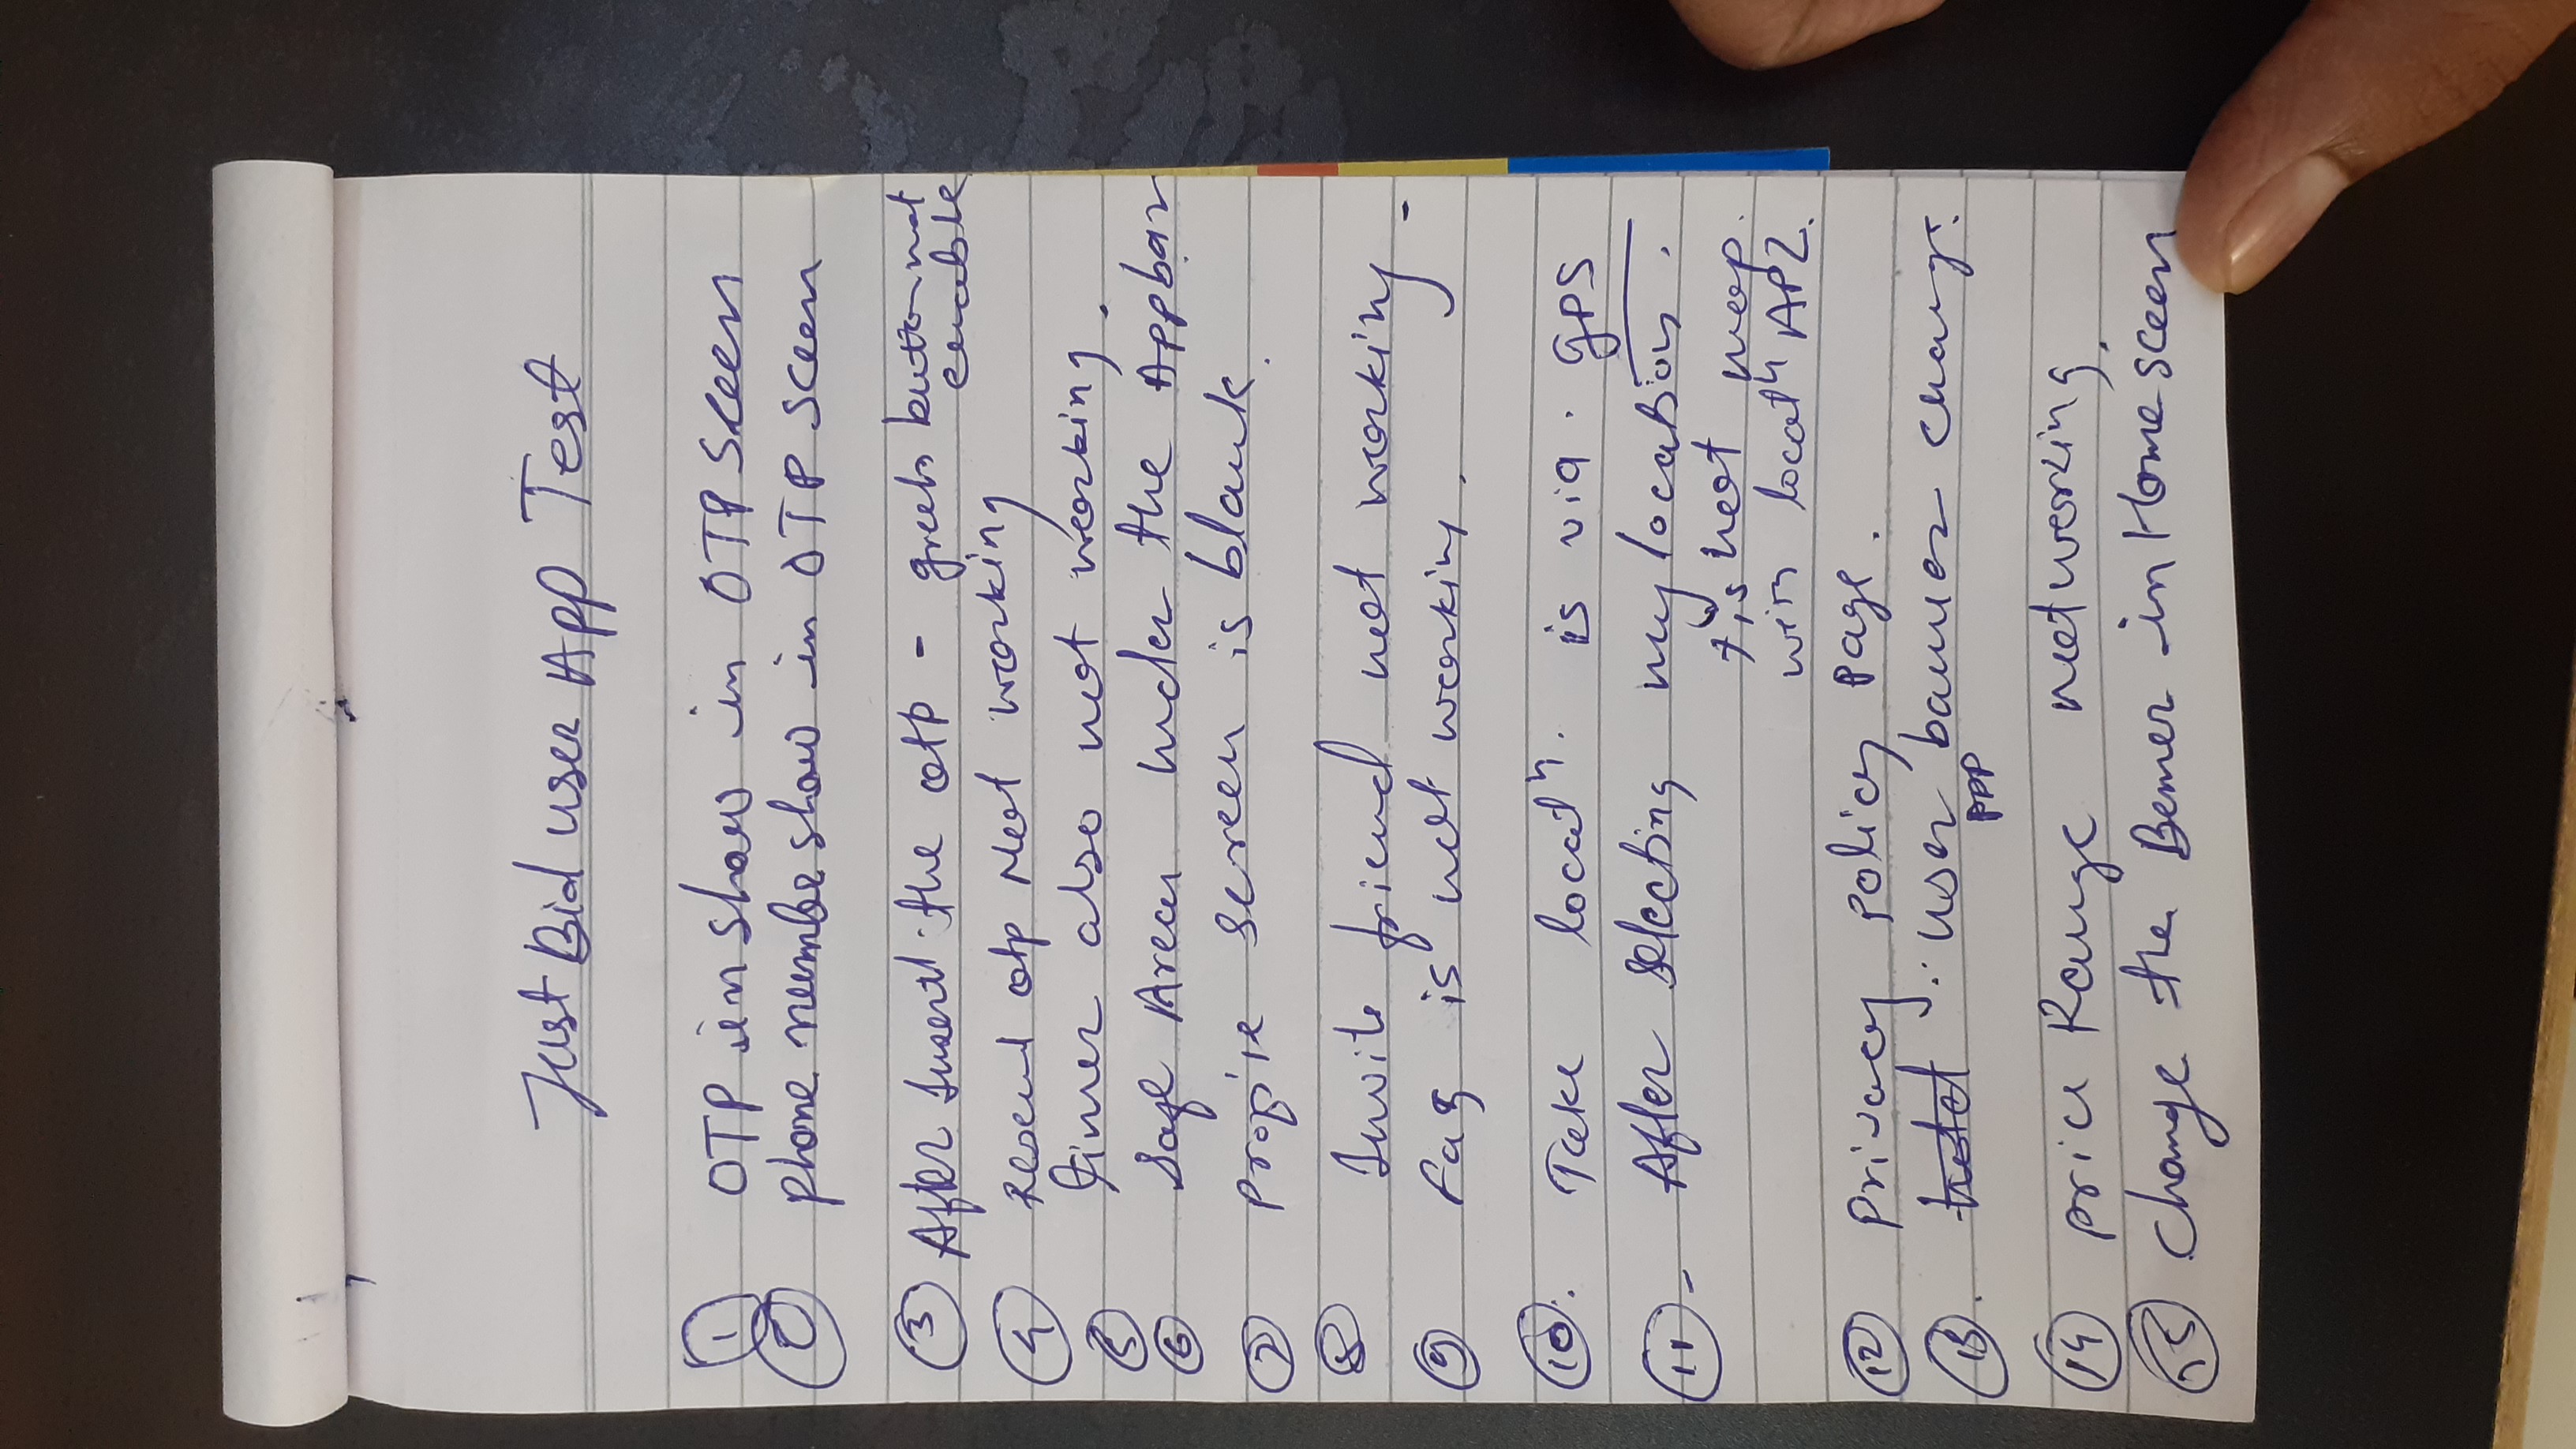 Just Bid user App Test
1 OTP in show in OTP Sceen
2 phone numbe show in OTP Sceen
3 After Insert the otp - button not
enable
4 Resend otp Not working
5 timer also not working.
6 Safe Area under the Appbar
7 profile screen is blank.
8 Invite friend not working -
9 faq is not working.
10. Take locatn. is via. GPS
11 - After selecting my location.
is not map.
with locatn API.
12 privacy policy page.
13. hotel user banner change.
PPP
14 price Range not working.
15 Change the Benner in Home sceen